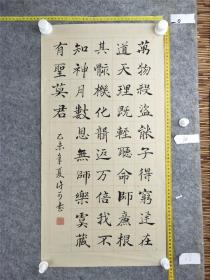 萬物殺盜能子得窮達在
道天理既輕聽命師廉根
其機化辟近万倍我不
知神月數恩無師樂冥藏
有聖莫君
乙未年夏書